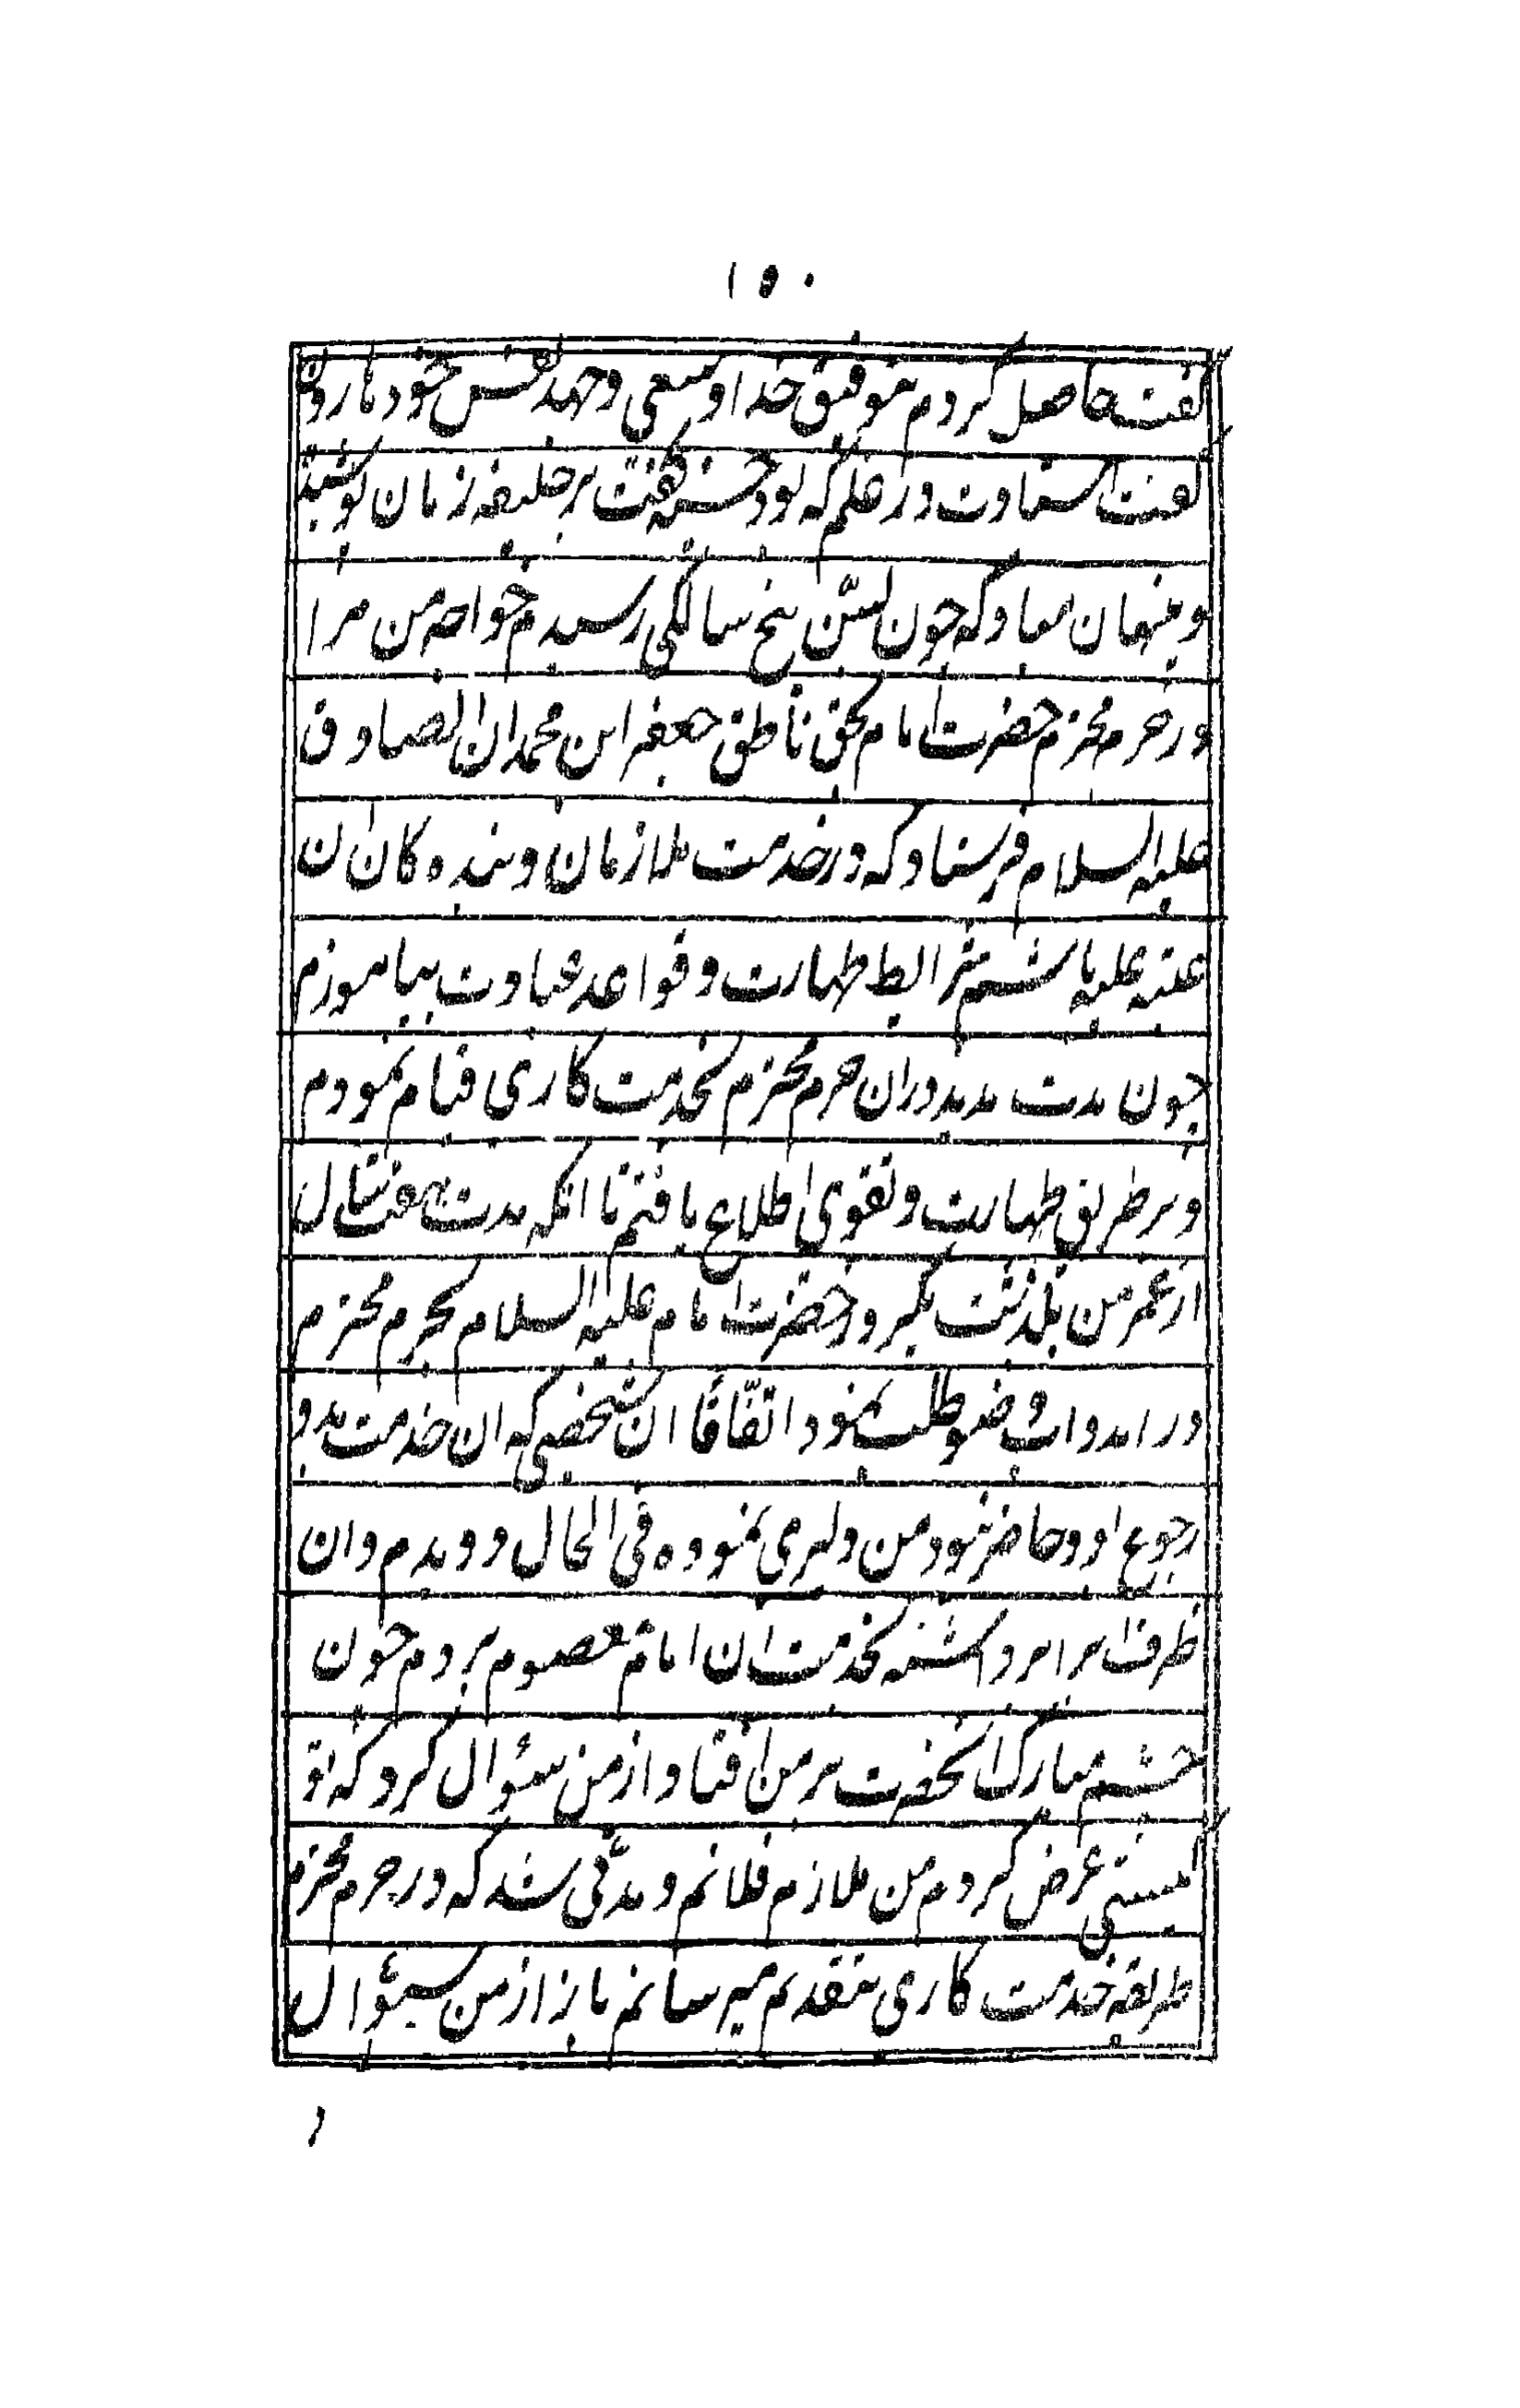 ۱۵۰
گفت حاصل کردم بتوفیق خدا و سعی و جهد نفس خود هارون
گفت استادت در علم که بود حسنیه گفت بر خلیفه زمان پوشیده
و پنهان مباد که چون بسن پنج سالگی رسیدم خواجه من مرا
در حرم محترم حضرت امام بحق ناطق جعفر ابن محمدان الصادق
علیه السلام فرستاد که در خدمت ملازمان و بنده کان ان
عتبه علیه باشم شرایط طهارت و قواعد عبادت بیاموزم
چون مدت مدید در ان حرم محترم بخدمت کاری قیام نمودم
و بر طریق طهارت و تقوی اطلاع یافتم تا انکه مدت هفت سال
از عمر من بگذشت یکروز حضرت امام علیه السلام بحرم محترم
در امد و اب وضو طلب نمود اتفاقًا ان شخصی که ان خدمت بدو
رجوع بود حاضر نبود من دلیری نموده فی الحال دویدم و ان
ظرف اب را برداشته بخدمت ان امام معصوم بردم چون
چشم مبارک انحضرت بر من افتاد از من سؤال کرد که تو
کیستی عرض کردم من ملازم فلانم و مدّتی شد که در حرم محترم
طریقه خدمت کاری بتقدیم میرسانم باز از من سؤال